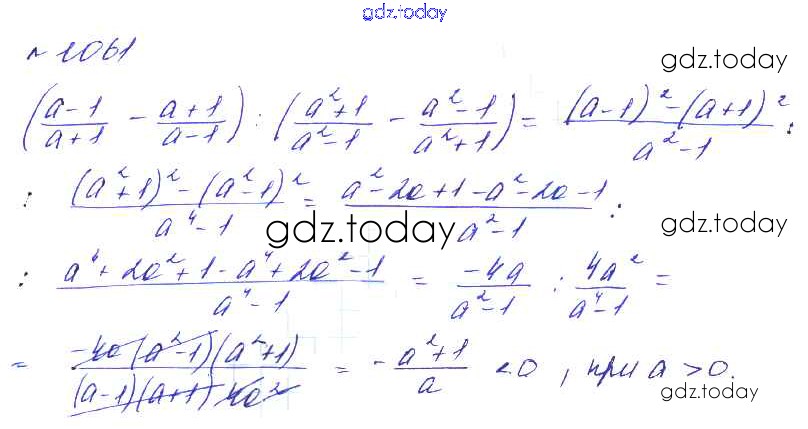 gdz.today
№ 1061
gdz.today
(a-1/a+1 - a+1/a-1) : (a²+1/a²-1 - a²-1/a²+1) = (a-1)²-(a+1)²/a²-1 :
: (a²+1)²-(a²-1)²/a⁴-1 = a²-2a+1-a²-2a-1/a²-1 :
gdz.today
gdz.today
: a⁴+2a²+1-a⁴+2a²-1/a⁴-1 = -4a/a²-1 : 4a²/a⁴-1 =
= -4a(a²-1)(a²+1)/(a-1)(a+1)4a² = -a²+1/a <0, при a>0.
gdz.today